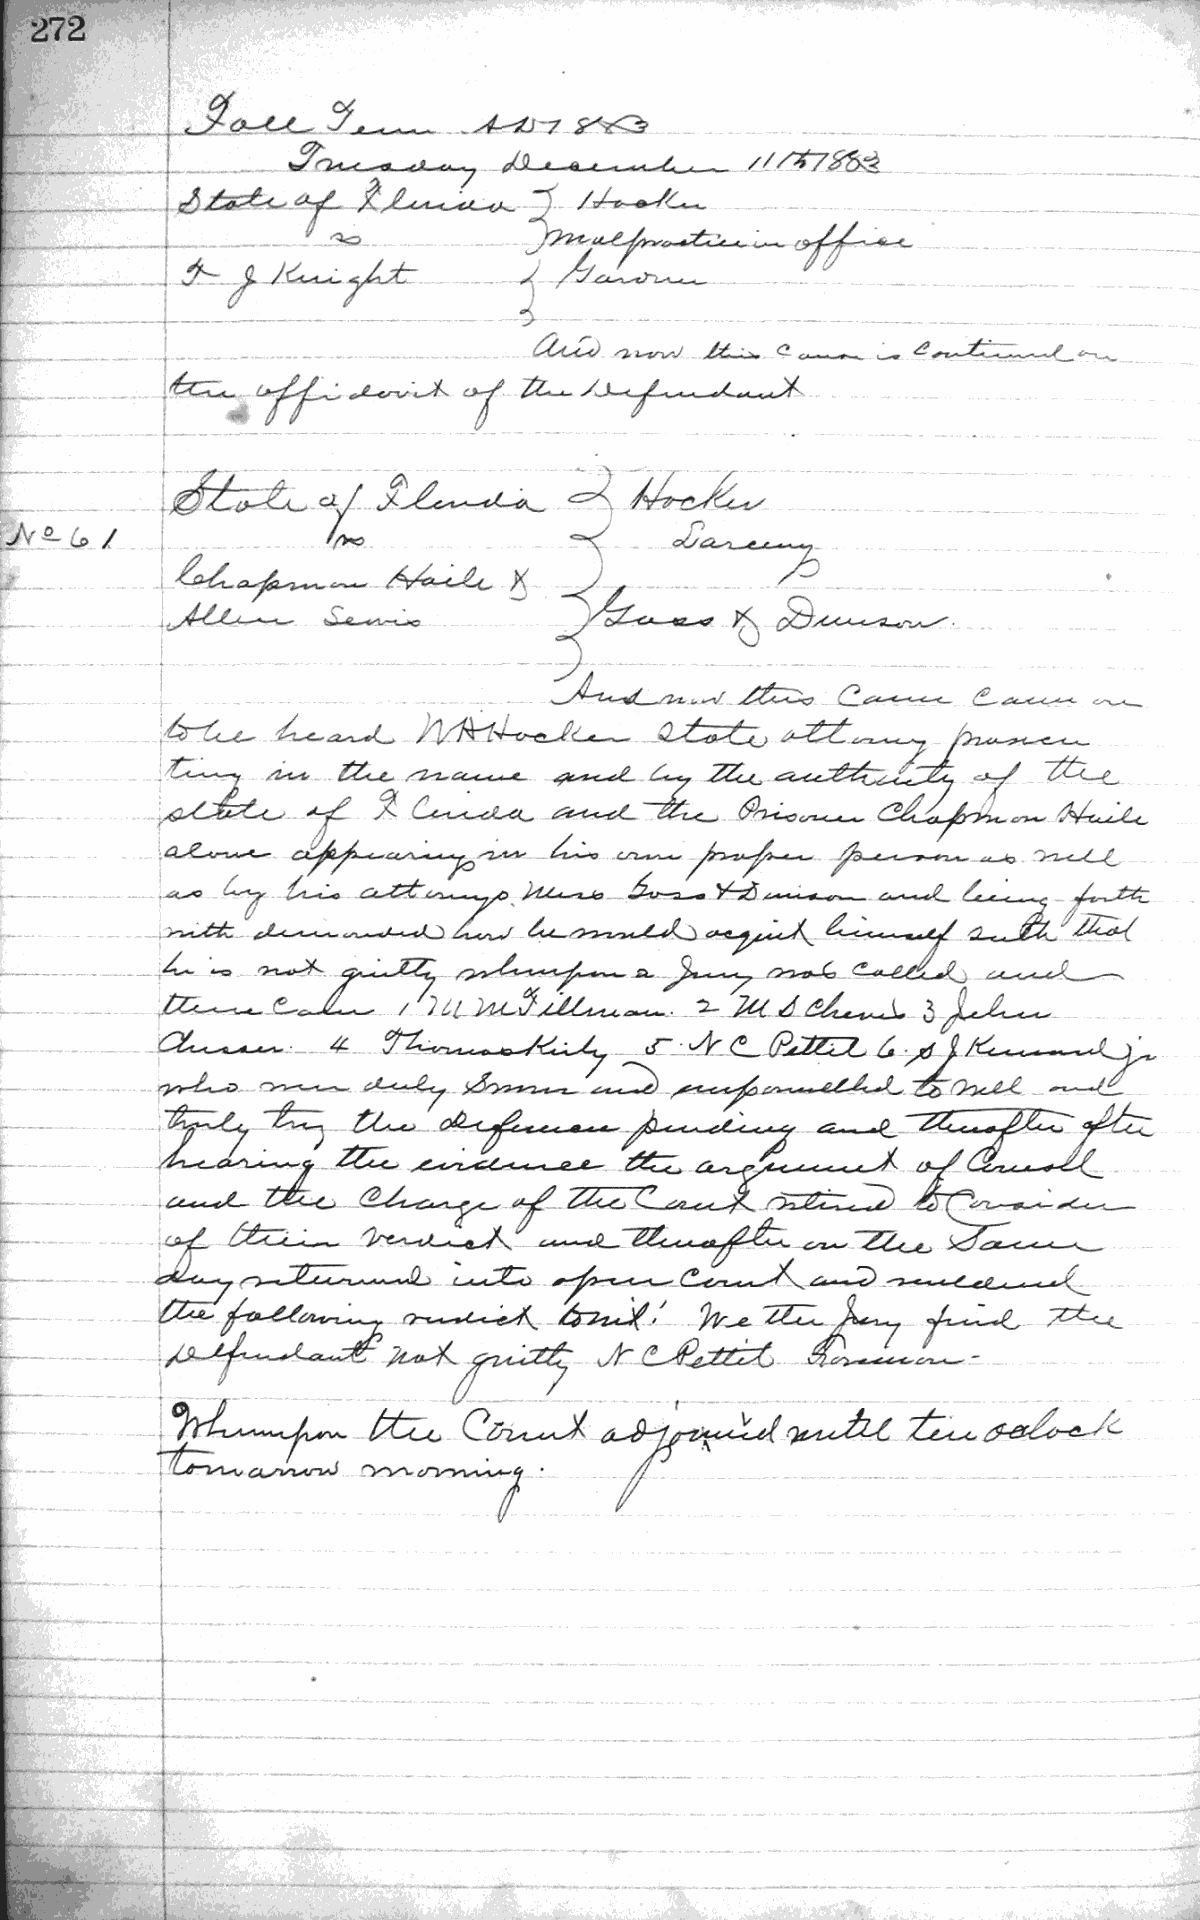 272
Fall Term AD 1883
Tuesday December 11th 1883
State of Florida } Hocker
vs } Malpractice in office
J Knight } Gardner
And now this Cause is Continued on
the affidavit of the Defendant
State of Florida } Hocker
No 61 vs } Larceny
Chapman Haile &
Allen Lewis } Goss & Dunson.
And now this Cause Came on
to be heard W A Hocker State attorney prosecu
ting in the name and by the authority of the
state of Florida and the Prisoner Chapman Haile
alone appearing in his own proper person as well
as by his attorneys Mess Goss & Dunson and being forth
with demanded how he would acquit himself saith that
he is not guilty whereupon a Jury was called and
there Came 1 M Tillman. 2 M S Cheves 3 John
4 Thomas Kirby 5 N C Pettit 6. S J Kennard jr
who were duly Sworn and empannelled to well and
truly try the defences pending and thereafter after
hearing the evidence the argument of Counsel
and the Charge of the Court retired to Consider
of their verdict and thereafter on the Same
day returned into open Court and rendered
the following verdict towit: We the Jury find the
Defendant not guilty N C Pettit Foreman-
Whereupon the Court adjourned until ten oclock
tomorrow morning.